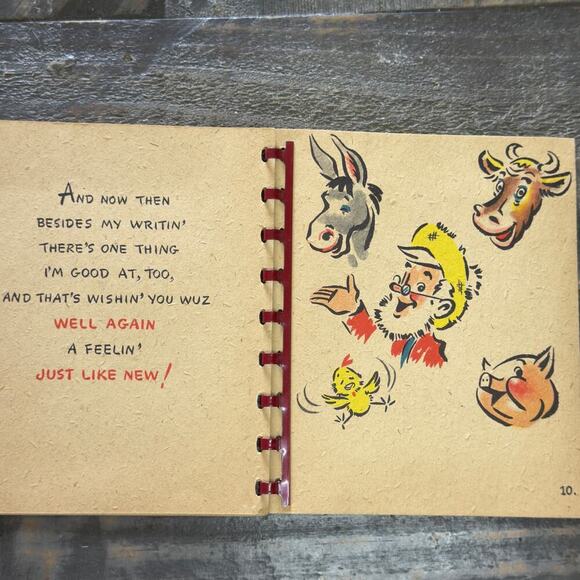 AND NOW THEN
BESIDES MY WRITIN'
THERE'S ONE THING
I'M GOOD AT, TOO,
AND THAT'S WISHIN' YOU WUZ
WELL AGAIN
A FEELIN'
JUST LIKE NEW!
10.